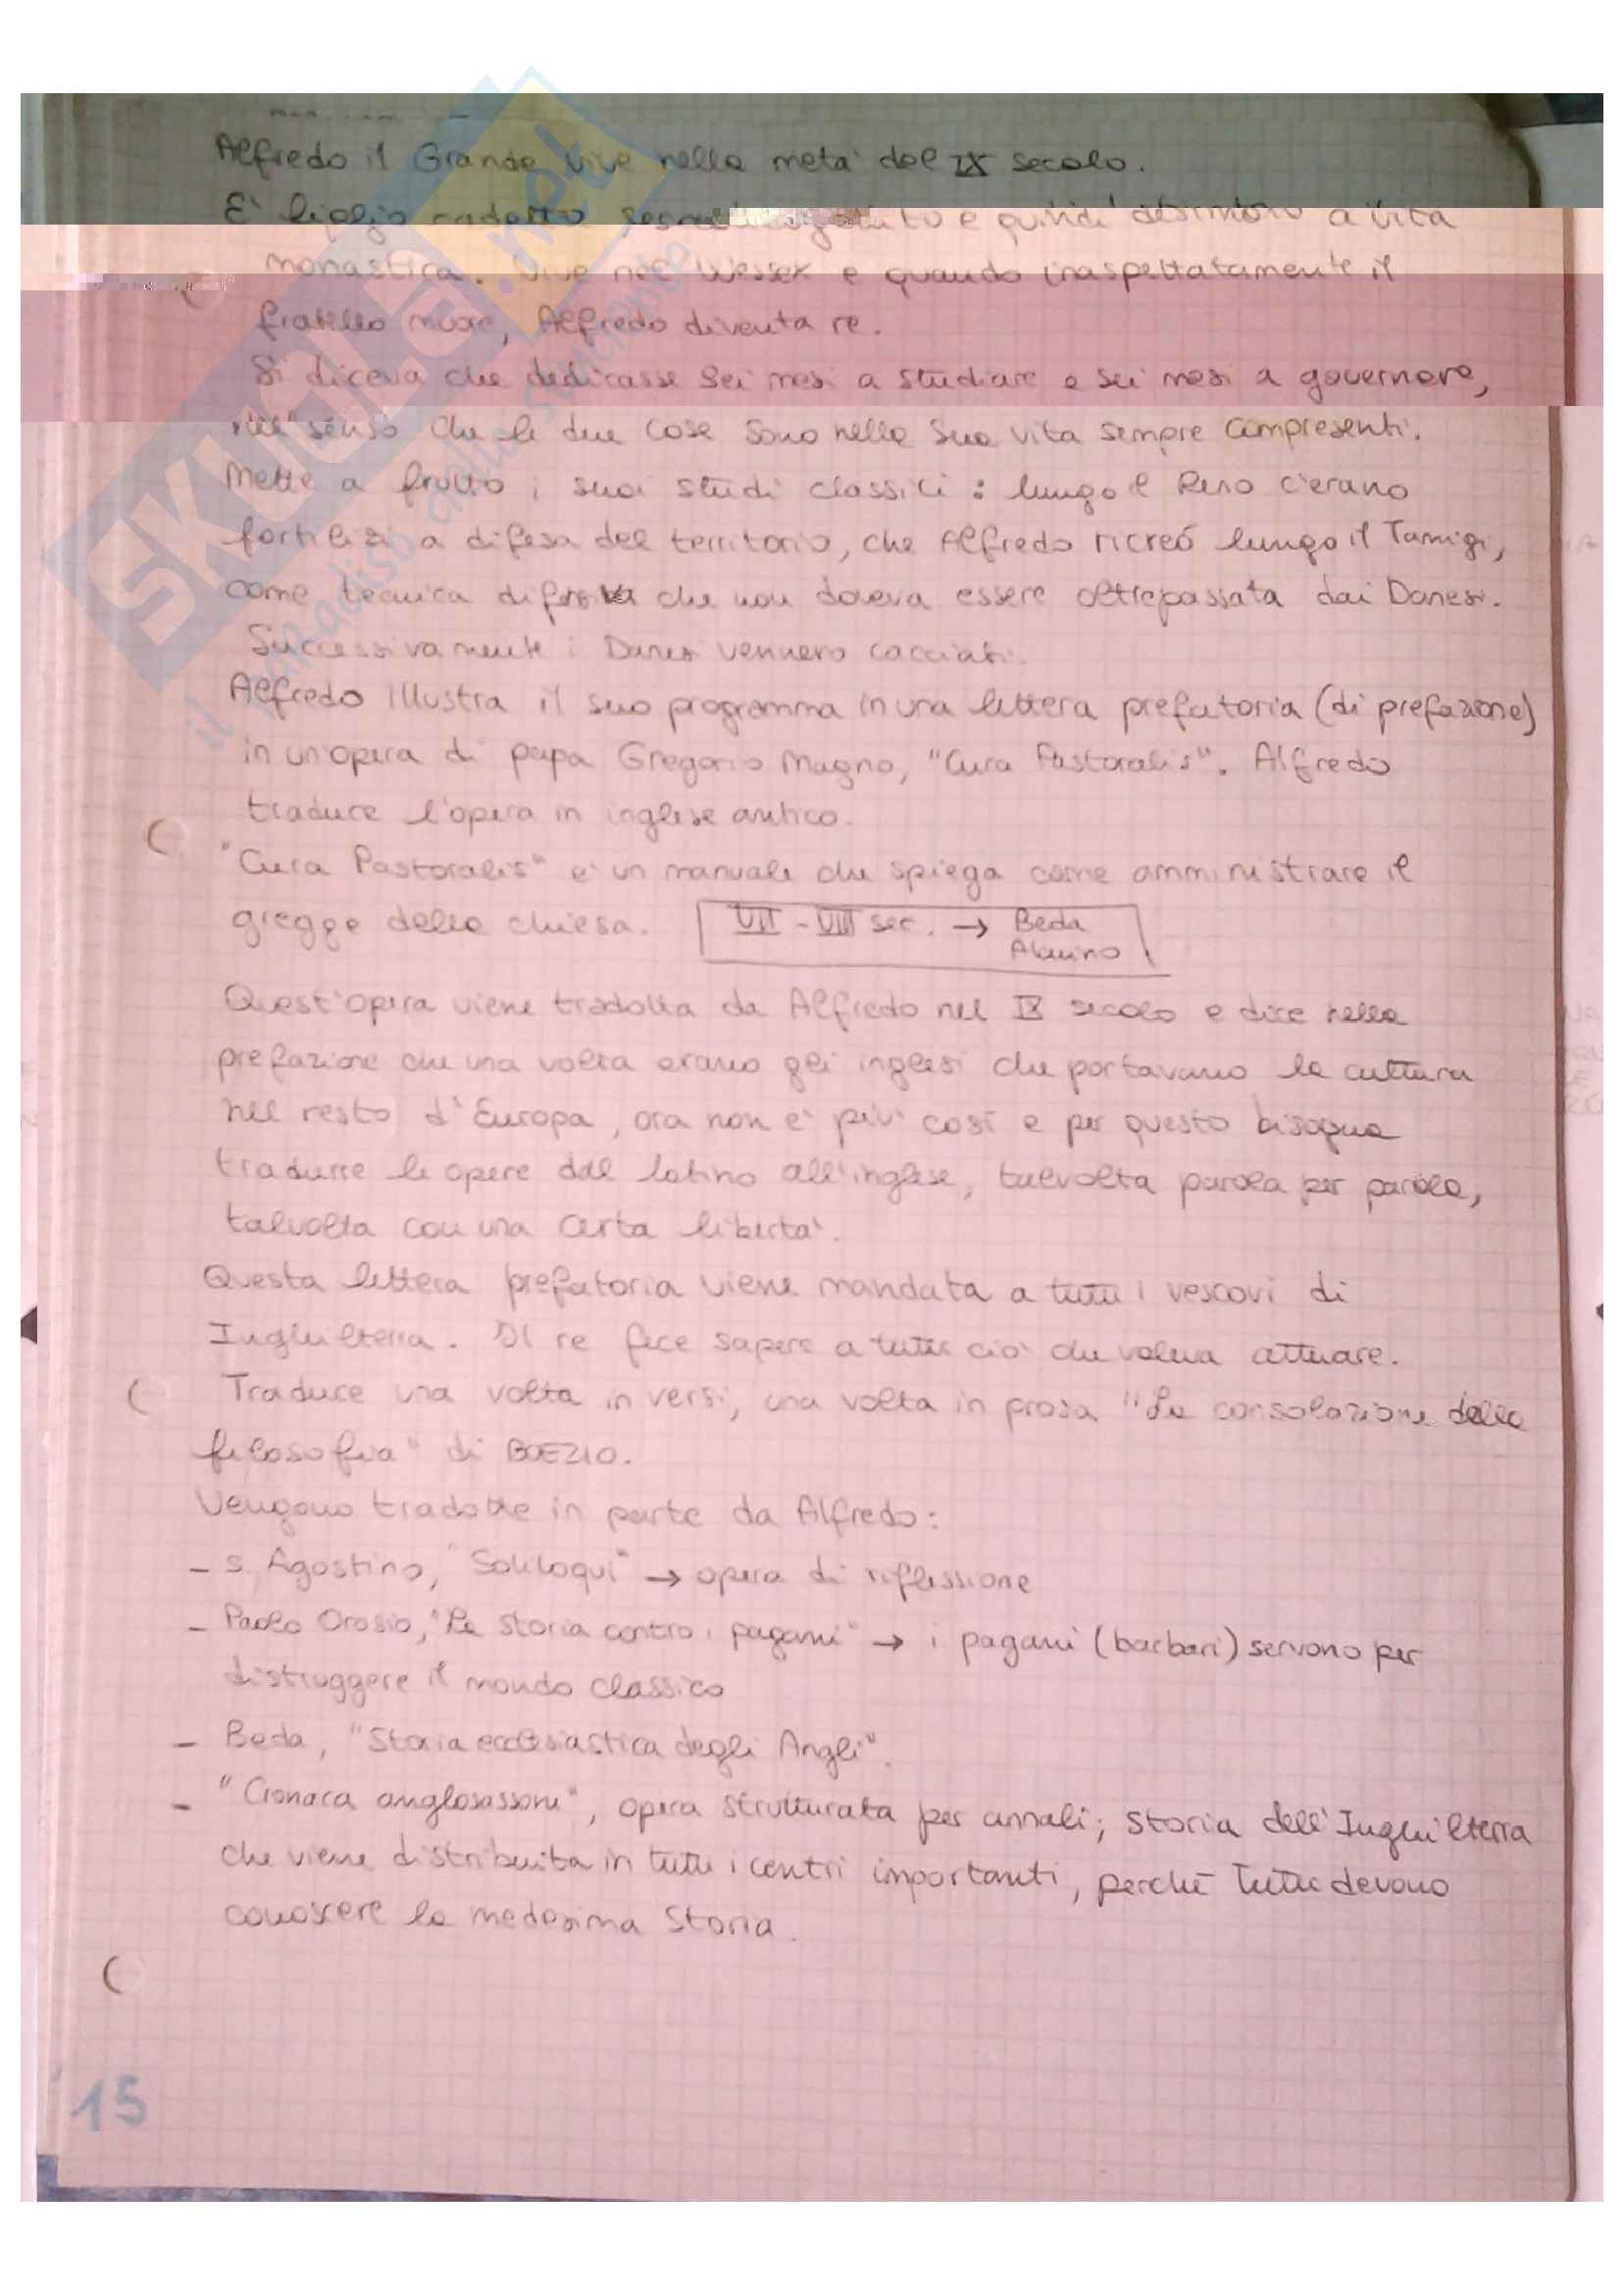 Alfredo il Grande vive nella metà del IX secolo.
E' figlio cadetto, e quindi destinato a vita
monastica. Vive nel Wessex e quando inaspettatamente il
fratello muore, Alfredo diventa re.
Si diceva che dedicasse sei mesi a studiare e sei mesi a governare,
nel senso che le due cose sono nella sua vita sempre compresenti.
Mette a frutto i suoi studi classici: lungo il Reno c'erano
fortilizi a difesa del territorio, che Alfredo ricreó lungo il Tamigi,
come tecnica difensiva che non doveva essere oltrepassata dai Danesi.
Successivamente i Danesi vennero cacciati.
Alfredo illustra il suo programma in una lettera prefatoria (di prefazione)
in un'opera di papa Gregorio Magno, "Cura Pastoralis". Alfredo
traduce l'opera in inglese antico.
"Cura Pastoralis" e' un manuale che spiega come amministrare il
gregge della chiesa. VII - VIII sec. → Beda
Alcuino
Quest'opera viene tradotta da Alfredo nel IX secolo e dice nella
prefazione che una volta erano gli inglesi che portavano la cultura
nel resto d'Europa, ora non e' più così e per questo bisogna
tradurre le opere dal latino all'inglese, talvolta parola per parola,
talvolta con una certa liberta'.
Questa lettera prefatoria viene mandata a tutti i vescovi di
Inghilterra. Il re fece sapere a tutti ciò che voleva attuare.
Traduce una volta in versi, una volta in prosa "La consolazione della
filosofia" di BOEZIO.
Vengono tradotte in parte da Alfredo:
- S. Agostino, "Soliloqui" → opera di riflessione
- Paolo Orosio, "Le storia contro i pagani" → i pagani (barbari) servono per
distruggere il mondo classico
- Beda, "Storia ecclesiastica degli Angli".
- "Cronaca anglosassone", opera strutturata per annali; storia dell'Inghilterra
che viene distribuita in tutti i centri importanti, perchē tutti devono
conoscere la medesima storia.
15
SKUOLA.net
il paradiso dello studente